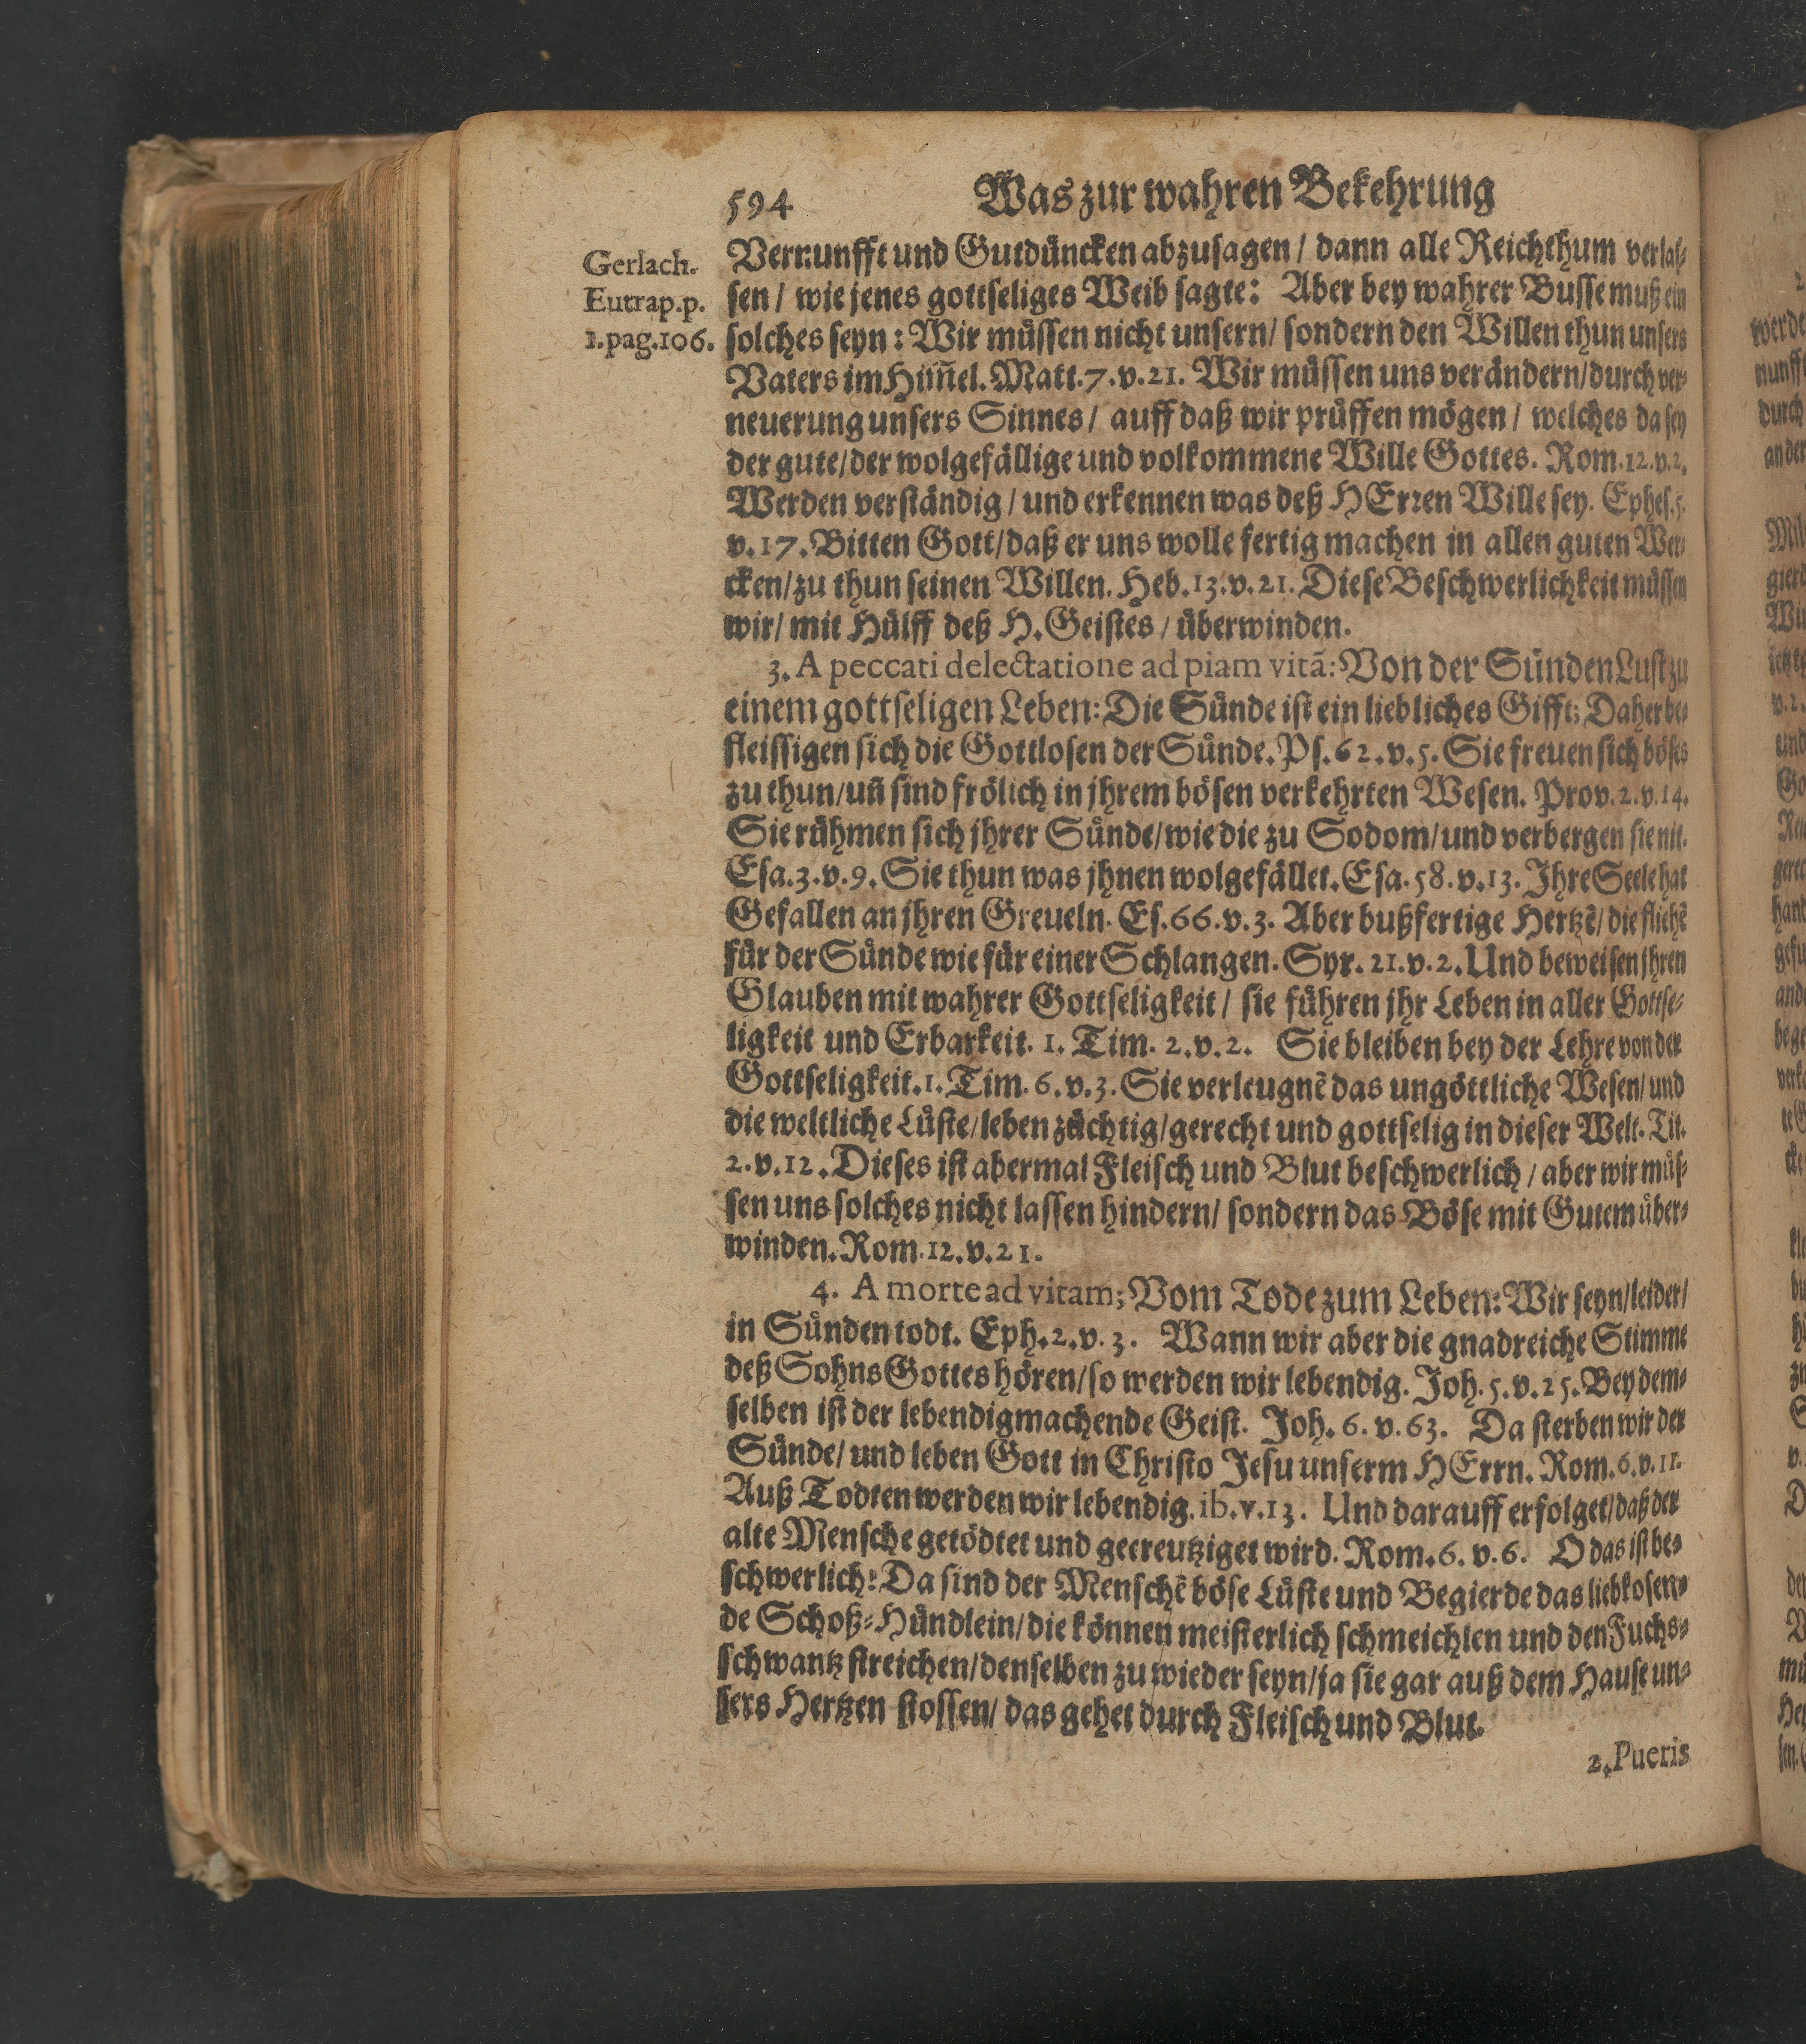 594 Was zur wahren Bekehrung
Gerlach.
Eutrap.p.
1.pag.106.
Vernunfft und Gutdüncken abzusagen / dann alle Reichthum verlas-
sen / wie jenes gottseliges Weib sagte: Aber bey wahrer Busse muß ein
solches seyn: Wir müssen nicht unsern / sondern den Willen thun unsers
Vaters im Him̃el. Matt. 7. v. 21. Wir müssen uns verändern / durch ver-
neuerung unsers Sinnes / auff daß wir prüffen mögen / welches da sey
der gute / der wolgefällige und volkommene Wille Gottes. Rom. 12. v. 2.
Werden verständig / und erkennen was deß HErren Wille sey. Ephes. 5.
v. 17. Bitten Gott / daß er uns wolle fertig machen in allen guten Wer-
cken / zu thun seinen Willen. Heb. 13. v. 21. Diese Beschwerlichkeit müssen
wir / mit Hülff deß H. Geistes / überwinden.
3. A peccati delectatione ad piam vitã: Von der Sünden Lust zu
einem gottseligen Leben: Die Sünde ist ein liebliches Gifft; Daher be-
fleissigen sich die Gottlosen der Sünde. Ps. 62. v. 5. Sie freuen sich böses
zu thun / uñ sind frölich in jhrem bösen verkehrten Wesen. Prov. 2. v. 14.
Sie rühmen sich jhrer Sünde / wie die zu Sodom / und verbergen sie nit.
Esa. 3. v. 9. Sie thun was jhnen wolgefället. Esa. 58. v. 13. Ihre Seele hat
Gefallen an jhren Greueln. Es. 66. v. 3. Aber bußfertige Hertzẽ / die fliehẽ
für der Sünde wie für einer Schlangen. Syr. 21. v. 2. Und beweisen jhren
Glauben mit wahrer Gottseligkeit / sie führen jhr Leben in aller Gottse-
ligkeit und Erbarkeit. 1. Tim. 2. v. 2. Sie bleiben bey der Lehre von der
Gottseligkeit. 1. Tim. 6. v. 3. Sie verleugnẽ das ungöttliche Wesen / und
die weltliche Lüste / leben züchtig / gerecht und gottselig in dieser Welt. Tit.
2. v. 12. Dieses ist abermal Fleisch und Blut beschwerlich / aber wir müs-
sen uns solches nicht lassen hindern / sondern das Böse mit Gutem über-
winden. Rom. 12. v. 21.
4. A morte ad vitam; Vom Tode zum Leben: Wir seyn / leider /
in Sünden todt. Eph. 2. v. 3. Wann wir aber die gnadreiche Stimme
deß Sohns Gottes hören / so werden wir lebendig. Joh. 5. v. 25. Bey dem-
selben ist der lebendigmachende Geist. Joh. 6. v. 63. Da sterben wir der
Sünde / und leben Gott in Christo Jesu unserm HErrn. Rom. 6. v. 11.
Auß Todten werden wir lebendig. ib. v. 13. Und darauff erfolget / daß der
alte Mensche getödtet und gecreutziget wird. Rom. 6. v. 6. O das ist be-
schwerlich! Da sind der Menschẽ böse Lüste und Begierde das liebkosen-
de Schoß-Hündlein / die können meisterlich schmeichlen und den Fuchs-
schwantz streichen / denselben zu wieder seyn / ja sie gar auß dem Hause un-
sers Hertzen stossen / das gehet durch Fleisch und Blut.
2. Pueris